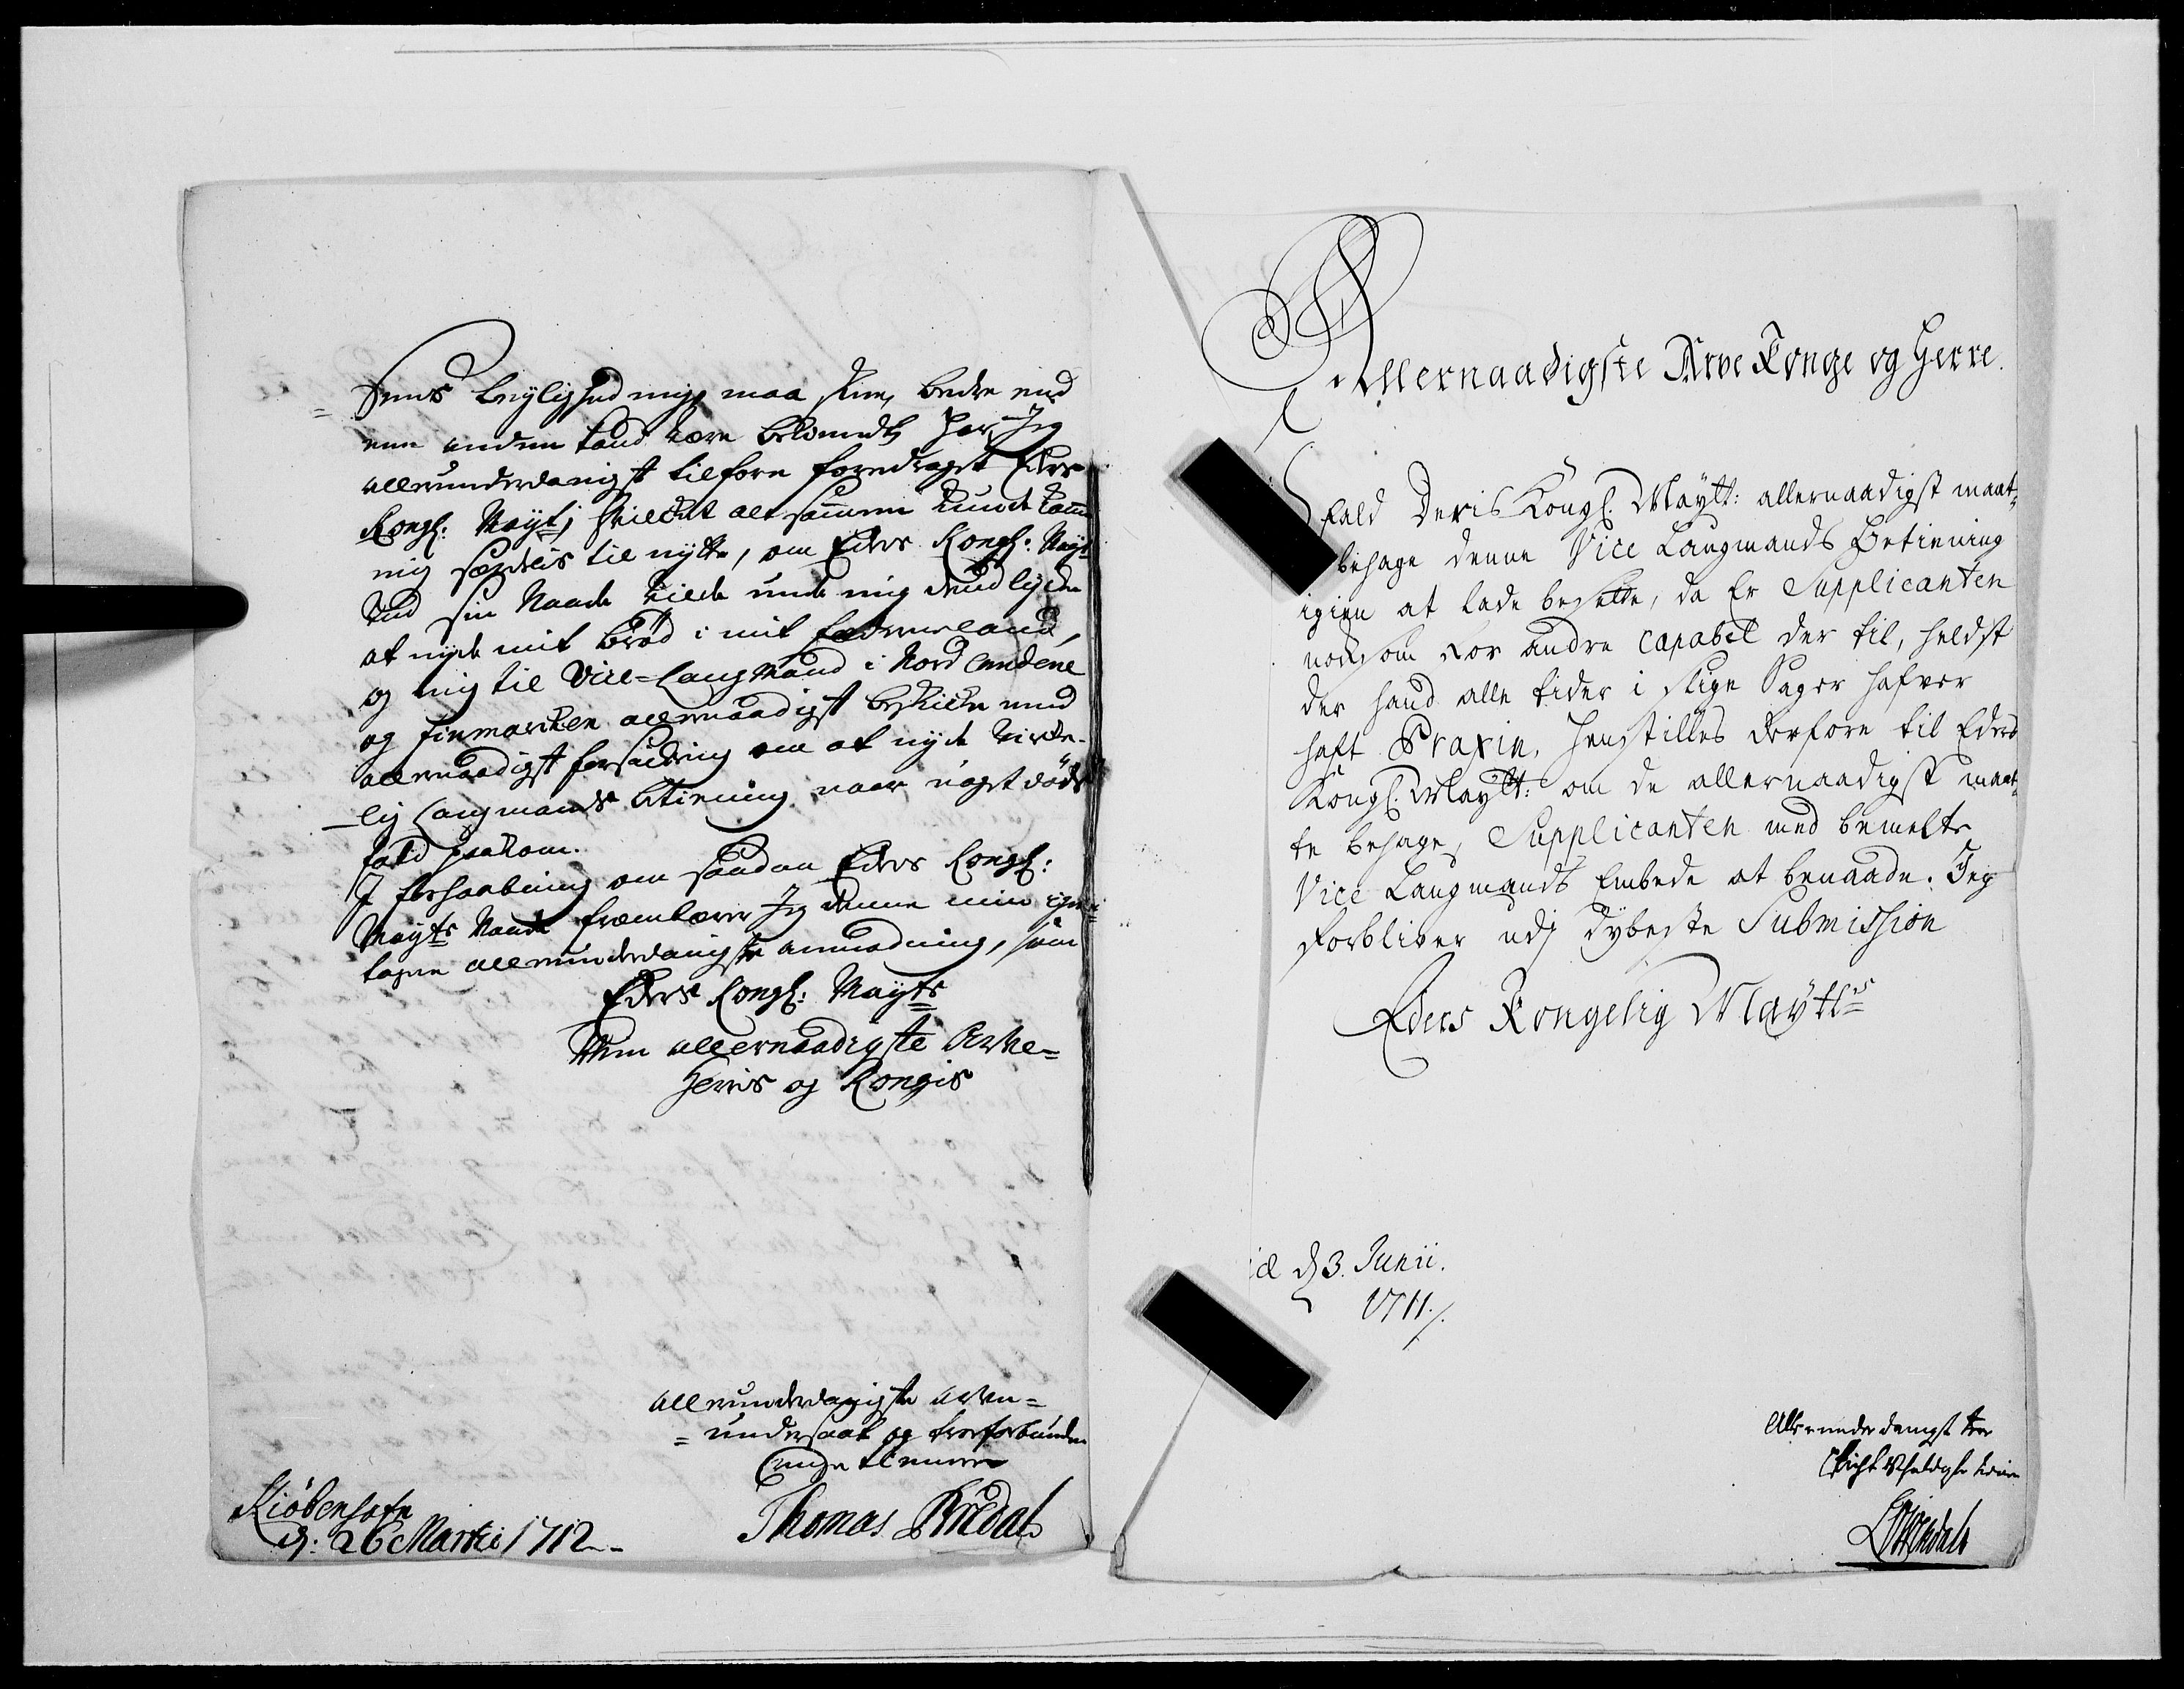 Sinds beqvemlighed mig maa skee, bedre end
een anden kand være bekiendt, Har Jeg
allerunderdanigst tilforn foredraget Eders
Kongl: Mayt; hvilchet alt sammen kunde komme
mig særdeis til nytte, om Eders Kongl: Mayt
ved sin Naade vilde unde mig dend lyche
at nyde mit brød i mit fæderneland,
og mig til Vice-Laugmand i Nordlandene
og finmarcken allernaadigst beskicke med
allernaadigst forsickring om at nyde Virke-
lig Laugmands bétiening, naar noget døds
fald paakom.
I forhaabning om saadan Eders Kongl:
Mayts Naade frembærer Jeg denne min igien-
tagne allerunderdanigste anmodning, som
Eders Kongl: Mayts
Min allernaadigste Arve-
Herris og Kongis
allerunderdanigste arve-
= undersaat og troeforbunden
tienner
Thomas Bredal
Kiöbenhafn
d: 26 Martii 1712.
Allernaadigste Arve Konge og Herre.
fald Deris Kongl. Maytt: allernaadigst maat-
behage denne Vice Laugmands Betiening
igien at lade besætte, da Er Supplicanten
noksom for andre capabel der til, heldst
der hand alle tider i slige Sager hafver
haft Praxin, henstilles derfore til Eders
Kongl. Maytt: om de allernaadigst maat-
te behage, Supplicanten med bemelte
Vice Laugmands Embede at benaade. Jeg
forbliver udj dybeste Submission
Eders Kongelig Maytts
d 3. Junii.
1711./.
Allerunderdanigst troe
Pligt Skyldigste tiener
Løvendahl